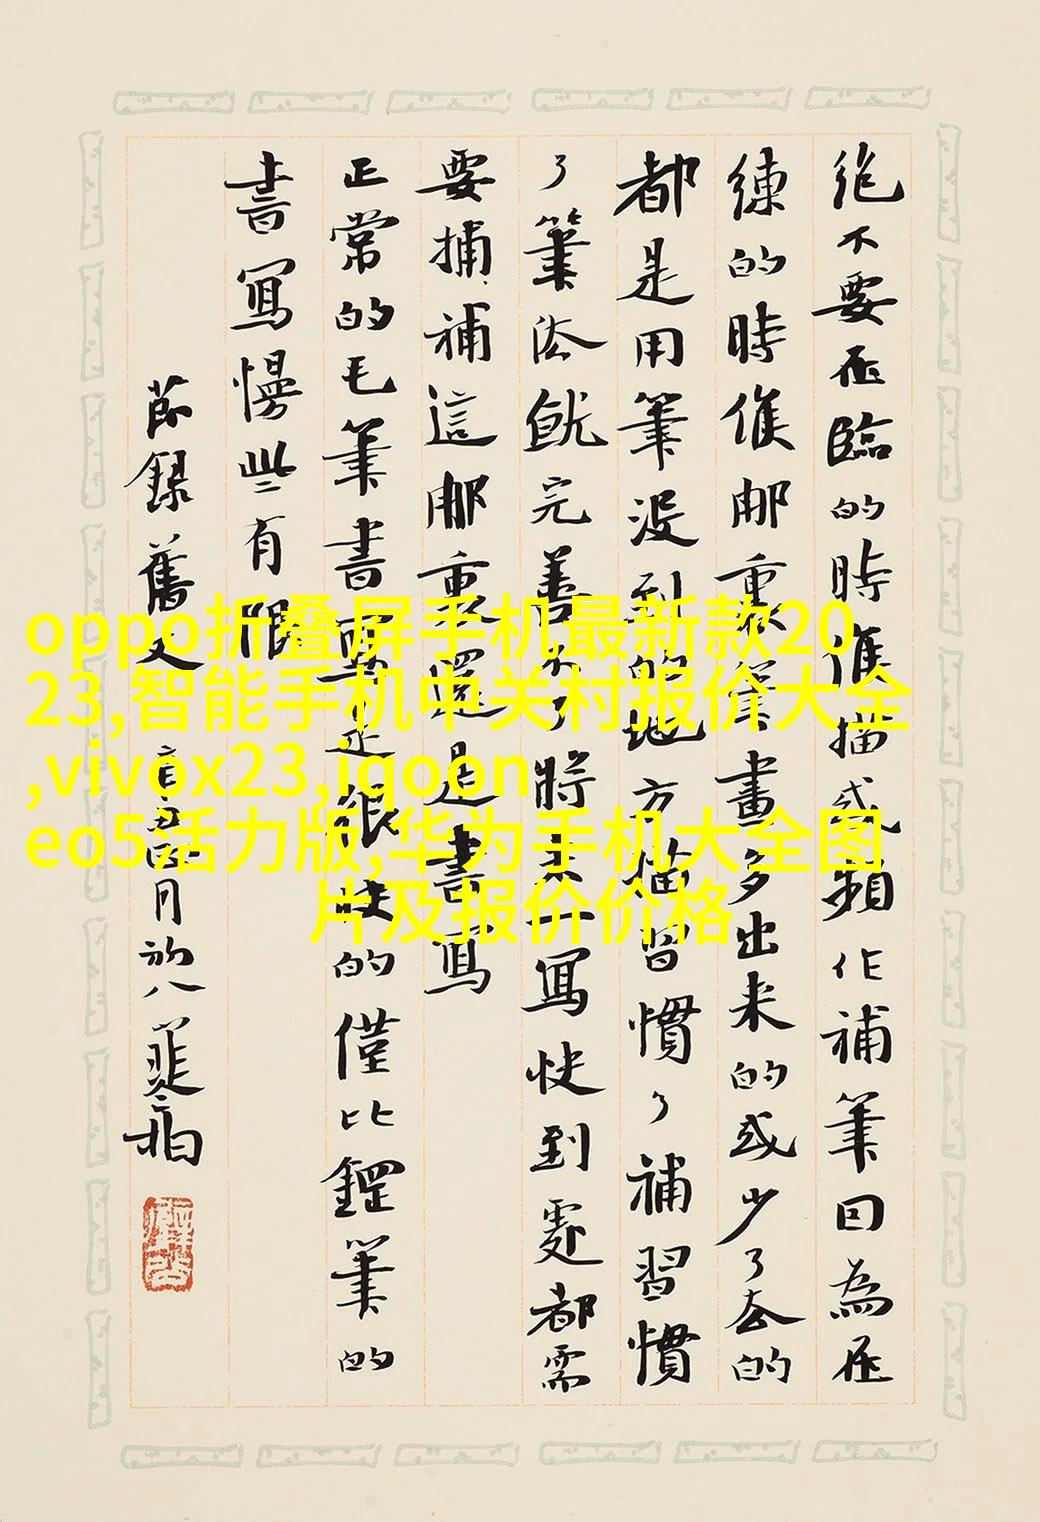 絕不要在臨的時候描或頻作補筆因為在
練的時候那裏筆畫多出來的或少了去的
都是用筆沒到的地方描習慣了補習慣
了筆法就完善不了將來一寫快到處都需
要捕補這那裏還是書寫
正常的毛筆書寫是很快的僅比鋼筆的
書寫慢些有限
節錄舊文 辛丑四月初八
oppo折叠屏手机最新款20
23,智能手机中关村报价大全
,vivox23,iqoon
eo5活力版,华为手机大全图
片及报价价格